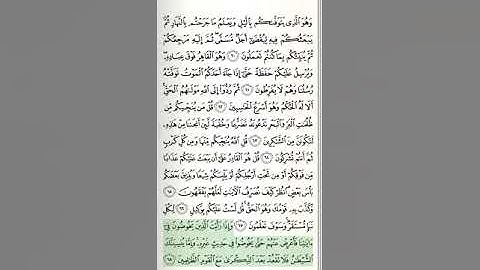 وَهُوَ ٱلَّذِى يَتَوَفَّىٰكُم بِٱلَّيْلِ وَيَعْلَمُ مَا جَرَحْتُم بِٱلنَّهَارِ ثُمَّ
يَبْعَثُكُمْ فِيهِ لِيُقْضَىٰٓ أَجَلٌ مُّسَمًّى ثُمَّ إِلَيْهِ مَرْجِعُكُمْ
ثُمَّ يُنَبِّئُكُم بِمَا كُنتُمْ تَعْمَلُونَ ٦٠ وَهُوَ ٱلْقَاهِرُ فَوْقَ عِبَادِهِۦ
وَيُرْسِلُ عَلَيْكُمْ حَفَظَةً حَتَّىٰٓ إِذَا جَآءَ أَحَدَكُمُ ٱلْمَوْتُ تَوَفَّتْهُ
رُسُلُنَا وَهُمْ لَا يُفَرِّطُونَ ٦١ ثُمَّ رُدُّوٓا۟ إِلَى ٱللَّهِ مَوْلَىٰهُمُ ٱلْحَقِّ
أَلَا لَهُ ٱلْحُكْمُ وَهُوَ أَسْرَعُ ٱلْحَٰسِبِينَ ٦٢ قُلْ مَن يُنَجِّيكُم مِّن
ظُلُمَٰتِ ٱلْبَرِّ وَٱلْبَحْرِ تَدْعُونَهُۥ تَضَرُّعًا وَخُفْيَةً لَّئِنْ أَنجَىٰنَا مِنْ هَٰذِهِۦ
لَنَكُونَنَّ مِنَ ٱلشَّٰكِرِينَ ٦٣ قُلِ ٱللَّهُ يُنَجِّيكُم مِّنْهَا وَمِن كُلِّ كَرْبٍ
ثُمَّ أَنتُمْ تُشْرِكُونَ ٦٤ قُلْ هُوَ ٱلْقَادِرُ عَلَىٰٓ أَن يَبْعَثَ عَلَيْكُمْ عَذَابًا
مِّن فَوْقِكُمْ أَوْ مِن تَحْتِ أَرْجُلِكُمْ أَوْ يَلْبِسَكُمْ شِيَعًا وَيُذِيقَ بَعْضَكُم
بَأْسَ بَعْضٍ ٱنظُرْ كَيْفَ نُصَرِّفُ ٱلْـَٔايَٰتِ لَعَلَّهُمْ يَفْقَهُونَ ٦٥
وَكَذَّبَ بِهِۦ قَوْمُكَ وَهُوَ ٱلْحَقُّ قُل لَّسْتُ عَلَيْكُم بِوَكِيلٍ ٦٦ لِّكُلِّ
نَبَإٍ مُّسْتَقَرٌّ وَسَوْفَ تَعْلَمُونَ ٦٧ وَإِذَا رَأَيْتَ ٱلَّذِينَ يَخُوضُونَ فِىٓ
ءَايَٰتِنَا فَأَعْرِضْ عَنْهُمْ حَتَّىٰ يَخُوضُوا۟ فِى حَدِيثٍ غَيْرِهِۦ وَإِمَّا يُنسِيَنَّكَ
ٱلشَّيْطَٰنُ فَلَا تَقْعُدْ بَعْدَ ٱلذِّكْرَىٰ مَعَ ٱلْقَوْمِ ٱلظَّٰلِمِينَ ٦٨